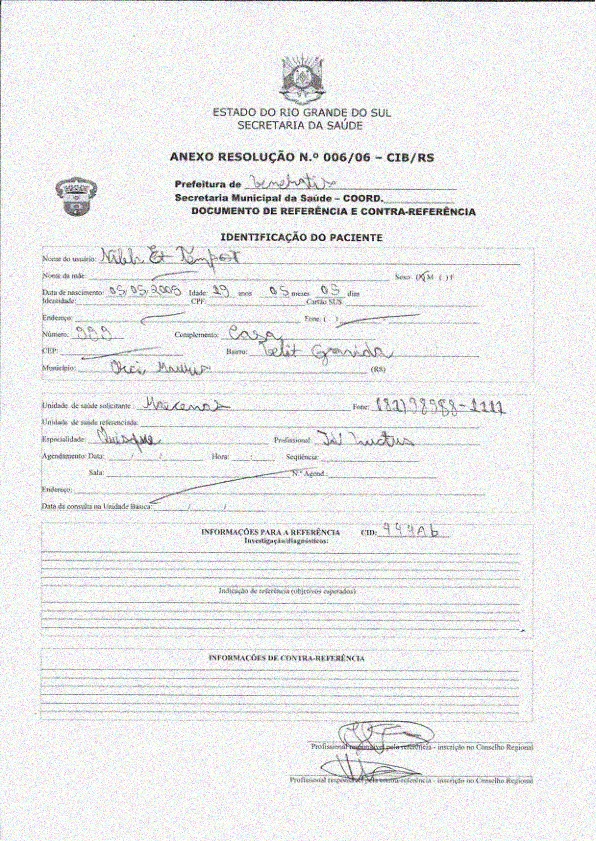 ESTADO DO RIO GRANDE DO SUL
SECRETARIA DA SAÚDE
ANEXO RESOLUÇÃO N.º 006/06 – CIB/RS
Prefeitura de
Secretaria Municipal da Saúde – COORD.
DOCUMENTO DE REFERÊNCIA E CONTRA-REFERÊNCIA
IDENTIFICAÇÃO DO PACIENTE
Nome do usuário: Et
Nome da mãe Sexo: (X) M ( ) F
Data de nascimento: 05/05/2005 Idade: 19 anos 05 meses 03 dias
Identidade: CPF: Cartão SUS:
Endereço: Fone: ( )
Número: 999 Complemento: Casa
CEP: Bairro:
Município: (RS)
Unidade de saúde solicitante: Fone: (81) 98988-1111
Unidade de saúde referenciada:
Especialidade: Profissional:
Agendamento: Data: / / Hora: : Seqüência:
Sala: N.º Agend.:
Endereço:
Data da consulta na Unidade Básica: / /
INFORMAÇÕES PARA A REFERÊNCIA CID: 444Ab
Investigação/diagnósticos:
Indicação de referência (objetivos esperados)
INFORMAÇÕES DE CONTRA-REFERÊNCIA
Profissional responsável pela referência - inscrição no Conselho Regional
Profissional responsável pela contra-referência - inscrição no Conselho Regional